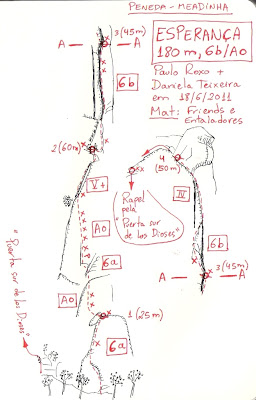 PENEDA - MEADINHA
ESPERANÇA
180m, 6b/A0
Paulo Roxo +
Daniela Teixeira
em 18/6/2011
Mat: Friends e
Entaladores
3(45m)
A — — A
6b
2(60m)
V+
A0
6a
A0
1(25m)
6a
"Puerta sur de los Dioses"
4
(50m)
IV
Rapel
pela
"Puerta sur
de los Dioses"
6b
3(45m)
A — — A